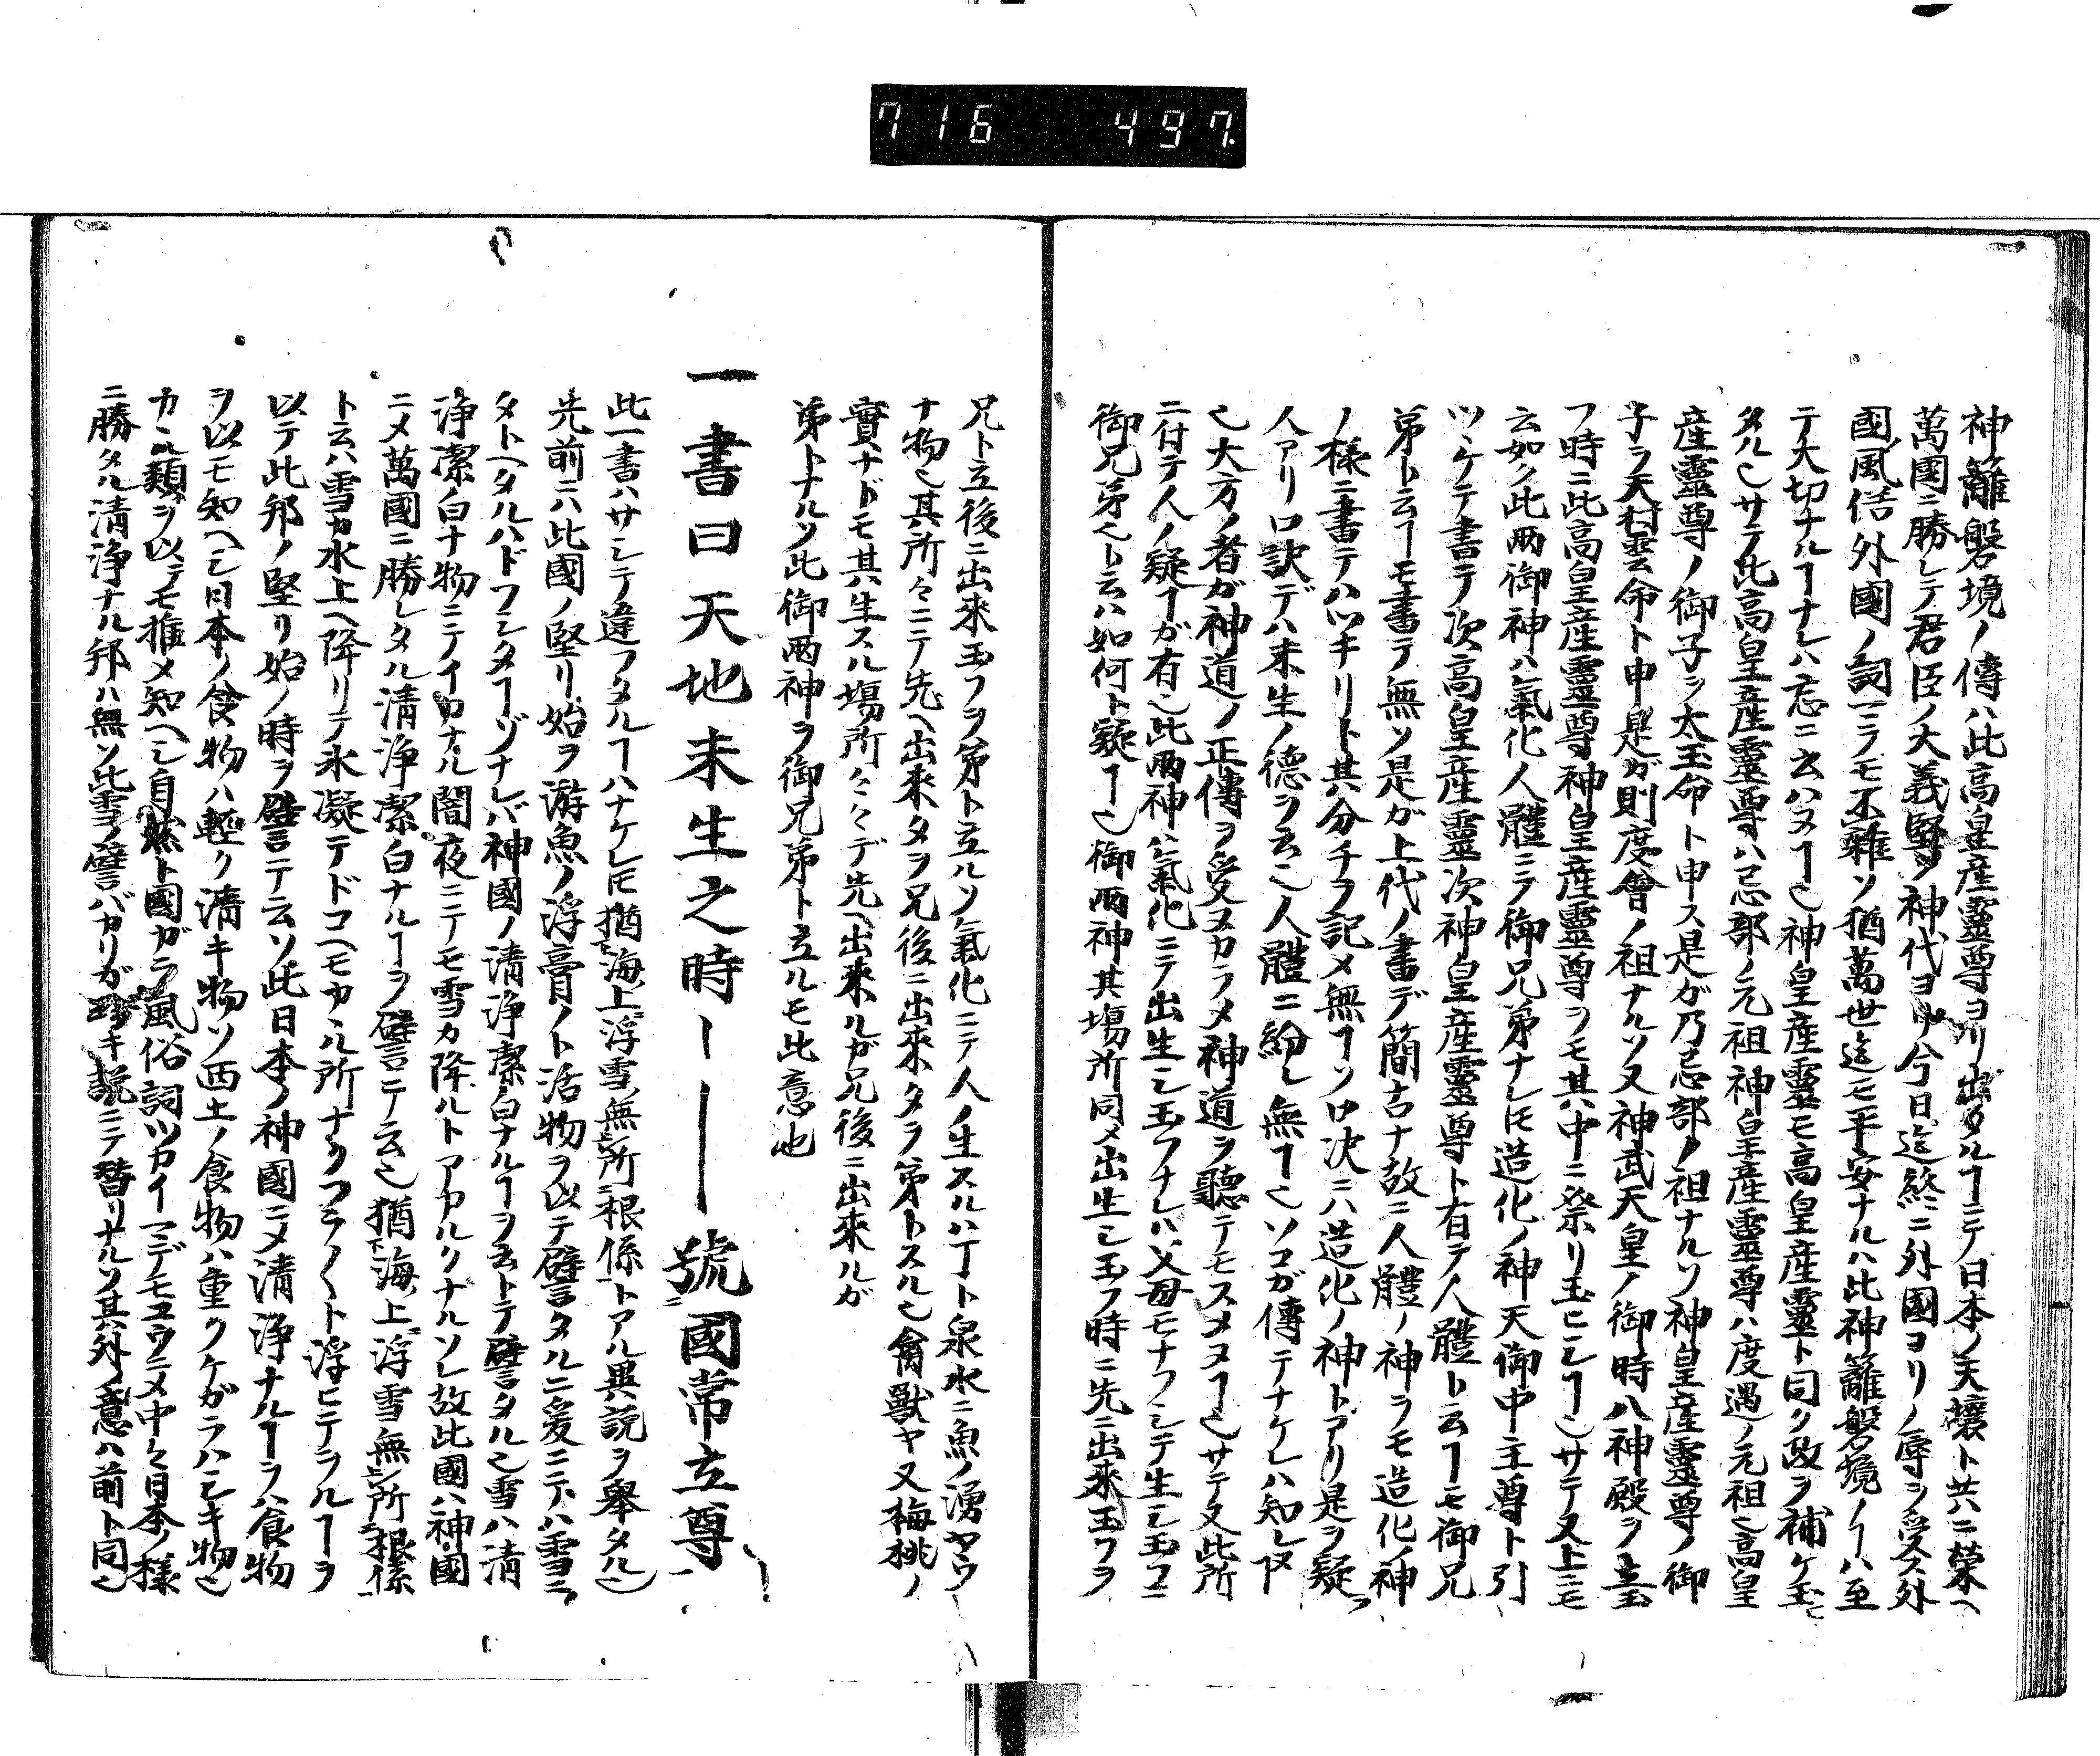 716 497.
神籬磐境ノ傳ハ此高皇産靈尊ヨリ出タルヿニテ日本ノ天壌ト共ニ榮ヘ
萬國ニ勝レテ君臣ノ大義堅ク神代ヨリ今日迄終ニ外國ヨリノ辱ヲ受ス外
國ノ風俗外國ノ詞一ツモ不雜ソ猶萬世迄モ平安ナルハ比神籬磐境ノヿハ至
テ大切ナルヿナレハ忘ニ云ハヌヿ也神皇産靈モ高皇産靈ト同ク政ヲ補ケ玉ヒ
タル也サテ此高皇産靈尊ハ忌部ノ元祖神皇産靈尊ハ度遇ノ元祖也高皇
産靈尊ノ御子ヲ太玉命ト申ス是が乃忌部ノ祖ナルソ神皇産靈尊ノ御
子ヲ天村雲命ト申是ガ則度會ノ祖ナルソ又神武天皇ノ御時八神殿ヲ立玉
フ時ニ此高皇産靈尊神皇産靈尊ヲモ其中ニ祭リ玉ヒシヿ也サテ又上ニモ
云如ク此兩御神ハ氣化人體ニテ御兄弟ナレ𪜈造化ノ神天御中主尊ト引
ツヾケテ書テ次高皇産靈次神皇産靈尊ト有テ人體ト云ヿモ御兄
弟ト云ヿモ書テ無ソ是が上代ノ書デ簡古ナ故ニ人體ノ神ヲモ造化ノ神
ノ様ニ書テハツキリト其分チヲ記メ無ヿソ口决ニハ造化ノ神トアリ是ヲ疑フ
人アリ口訣デハ未生ノ德ヲ云也人體ニ紛レ無ヿ也ソコガ傳テナケレハ知レヌ
也大方ノ者ガ神道ノ正傳ヲ受スカラメ神道ヲ聽テモスメヌヿ也サテ又此所
ニ付テ人ノ疑ヿが有也此兩神ハ氣化ニテ出生シ玉フナレハ父母モナフシテ生シ玉フニ
御兄弟也ト云ハ如何ト疑ヿ也御兩神其塲所同メ出生シ玉フ時ニ先ニ出来玉フヲ
兄ト立後ニ出來玉フヲ弟ト立ルソ氣化ニテ人ノ生スルハ丁ト泉水ニ魚ノ湧ヤウ
ナ物也其所々ニテ先ヘ出來タヲ兄後ニ出來タヲ弟トスル也禽獸ヤ又梅桃ノ
實ナドモ其生スル塲所々々デ先ヘ出来ルが兄後ニ出来ルが
弟トナルソ此御兩神ヲ御兄弟ト立ルモ此意也
一書曰天地未生之時ーー――號國常立尊
此一書ハサシテ違フタルヿハナケレ𪜈猶海上浮雪無所根係トアル異説ヲ舉タル也
先前ニハ此國ノ堅リ始ヲ游魚ノ浮膏ノト活物ヲ以テ譬タルニ爰ニテハ雪ニ
タトヘタルハドフシタヿゾナレバ神國ノ清浄潔白ナルヿヲ云トテ譬タル也雪ハ清
浄潔白ナ物ニテイカナル闇夜ニテモ雪カ降ルトアカルクナルソレ故此國ハ神國
ニメ萬國ニ勝レタル清浄潔白ナルヿヲ譬ニテ云也猶海上浮雪無所根係
ト云ハ雪カ水上ヘ降リテ氷凝テドコヘモカヽル所ナクフラ〱ト浮ヒテヲルヿヲ
以テ此邦ノ堅リ始ノ時ヲ譬テ云ソ此日本ノ神國ニメ清浄ナルヿヲハ食物
ヲ以モ知ヘシ日本ノ食物ハ輕ク清キ物ソ西土ノ食物ハ重クケガラハシキ物也
カヽル類ヲ以テモ推メ知ヘシ自然ト國ガラ風俗詞ツカイマデモユウニメ中々日本ノ様
ニ勝タル清浄ナル邦ハ無ソ此雪ノ譬バカリガ珍キ説ニテ替リナルソ其外ノ意ハ前ト同也